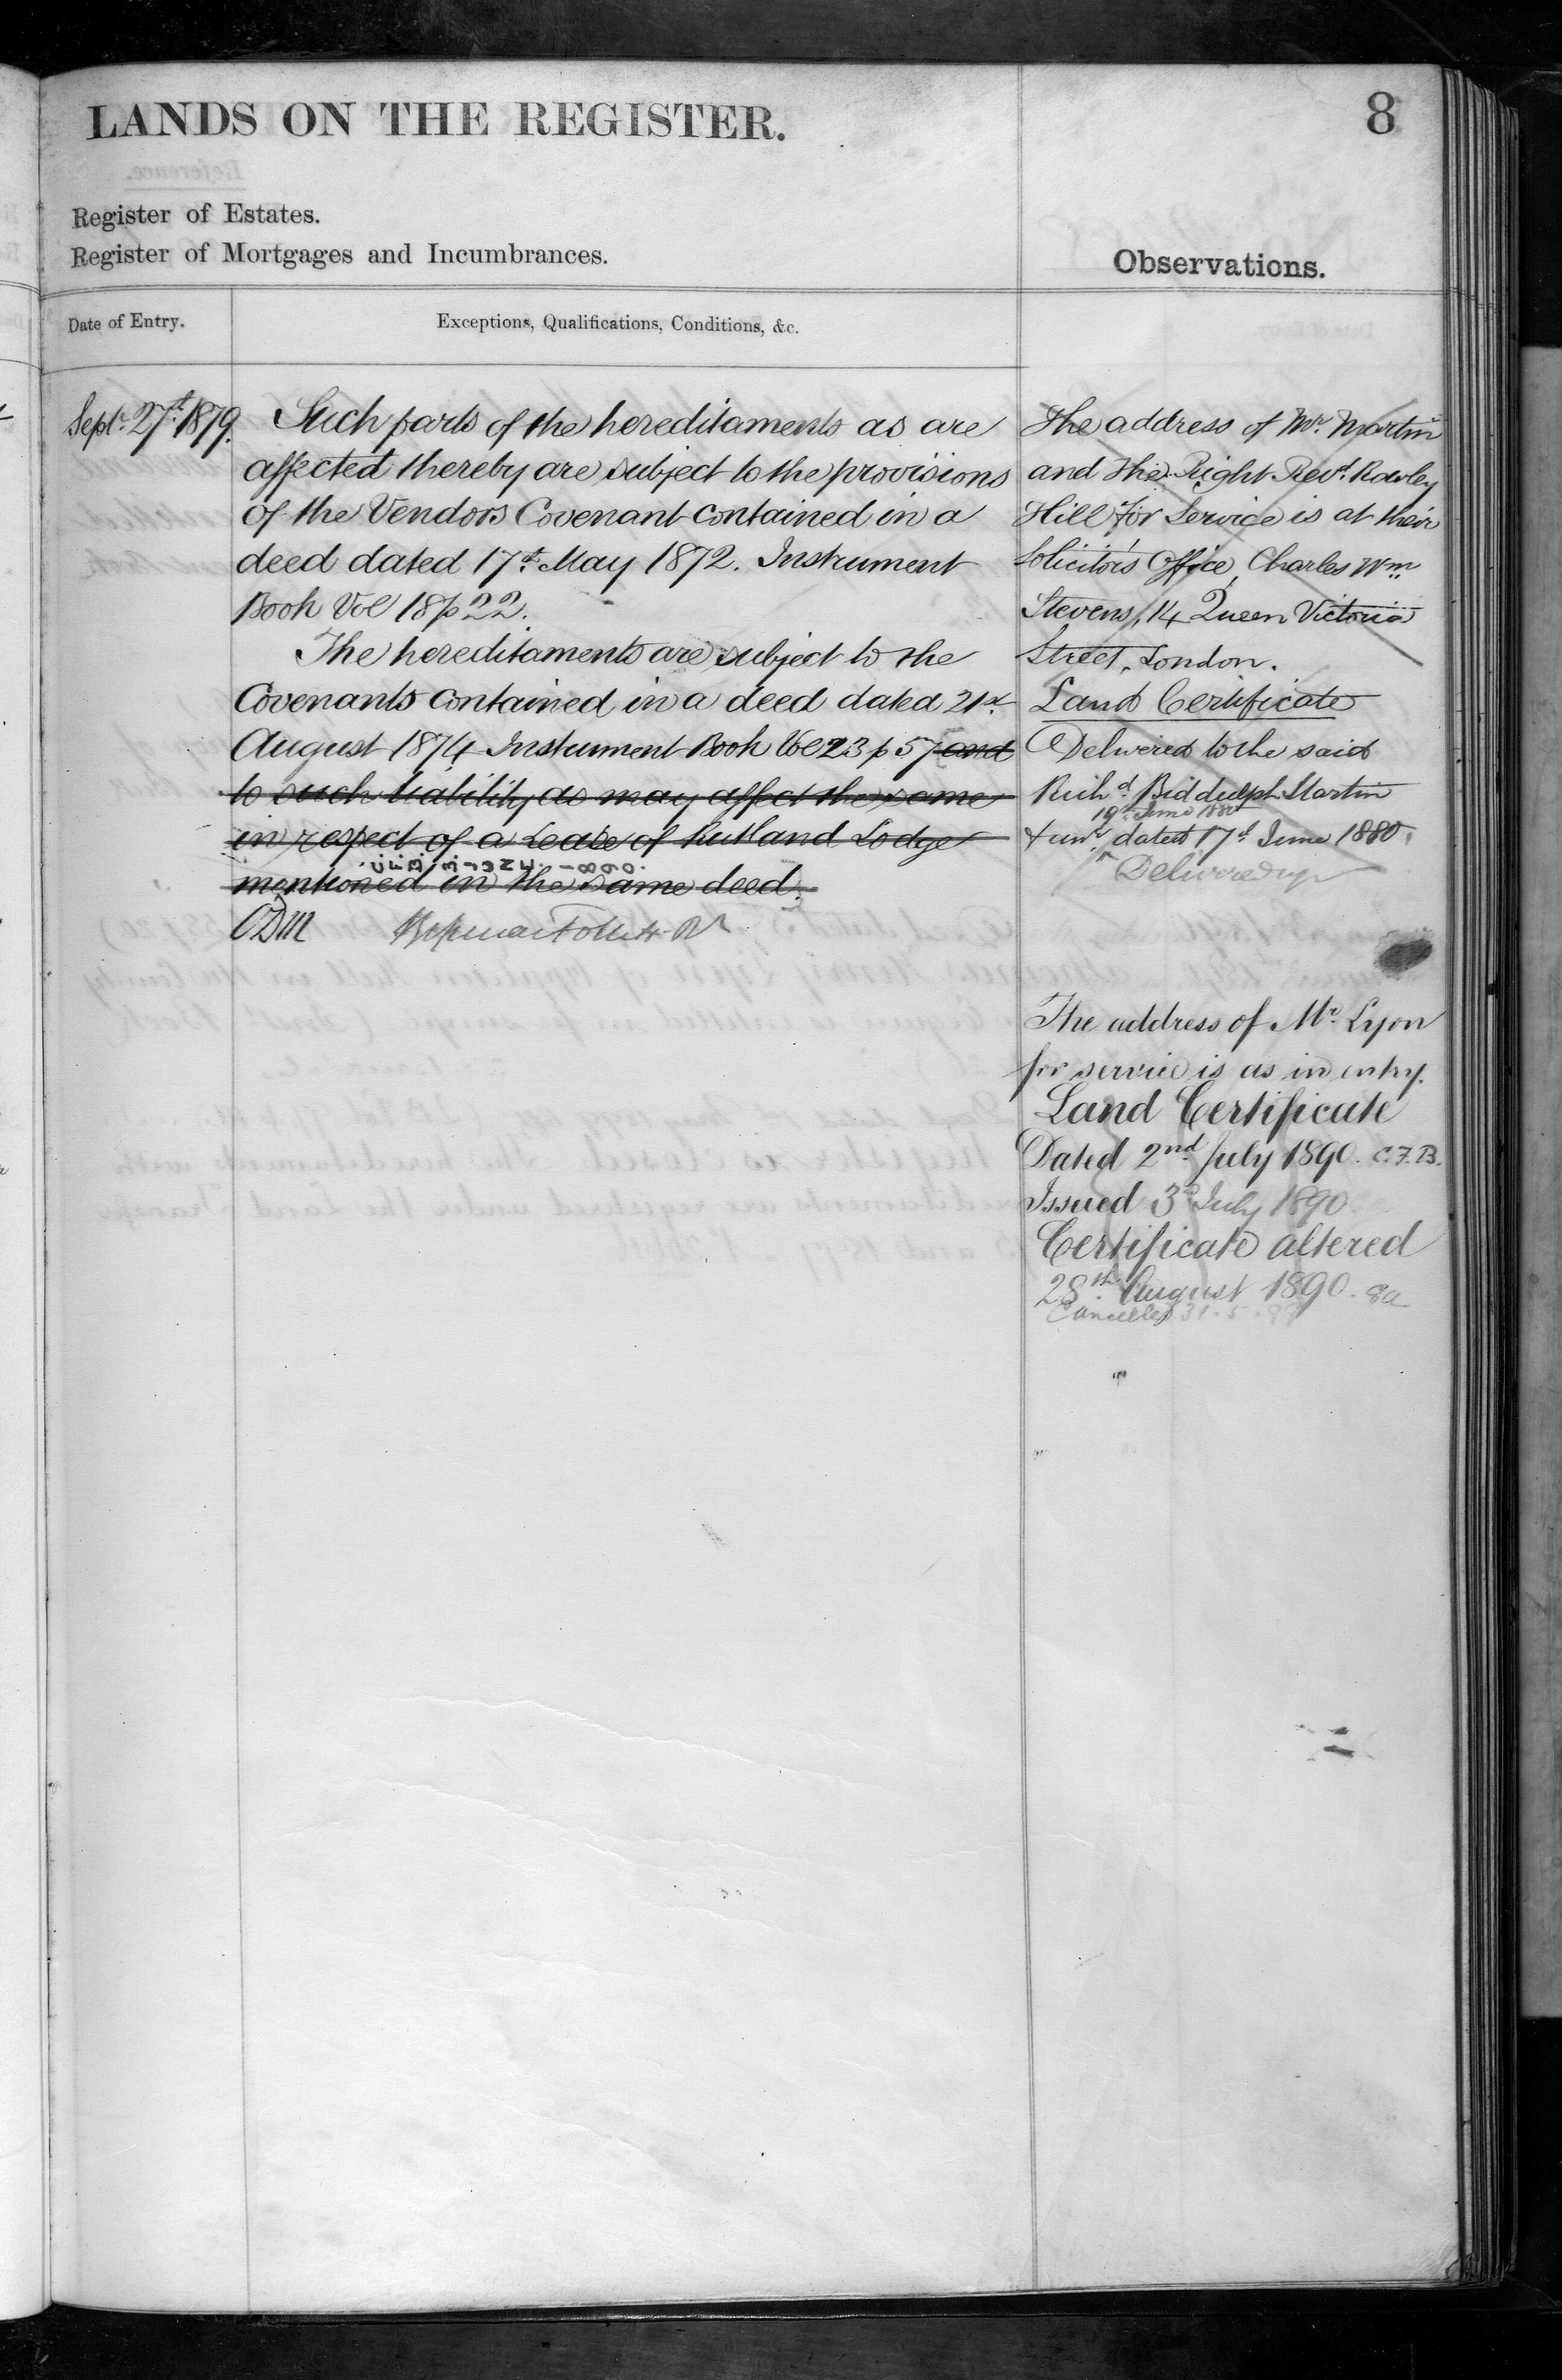 LANDS ON THE REGISTER.
8
Register of Estates.
Register of Mortgages and Incumbrances.
Observations.
Date of Entry.
Exceptions, Qualifications, Conditions, &c.
Septr. 27th 1879.
Such parts of the hereditaments as are
affected thereby are subject to the provisions
of the Vendors Covenant contained in a
deed dated 17th May 1872. Instrument
Book Vol 18 p 22.
The hereditaments are subject to the
Covenants contained in a deed dated 21st
August 1874 Instrument Book Vol 23 p 57 and
to such liability as may affect the same
in respect of a Lease of Rutland Lodge
mentioned in the same deed.
The address of Mr. Martin
and the Right Revd. Rowley
Hill for Service is at their
Solicitors Office, Charles Wm.
Stevens, 14 Queen Victoria
Street, London.
Land Certificate
Delivered to the said
Richd. Biddulph Martin
19th June 1880
dated 17th June 1880.
Delivered up
The address of Mr. Lyon
for service is as in entry.
Land Certificate
Dated 2nd July 1890. C.F.B.
Issued 3d July 1890
Certificate altered
28th August 1890.
Cancelled 31-5-